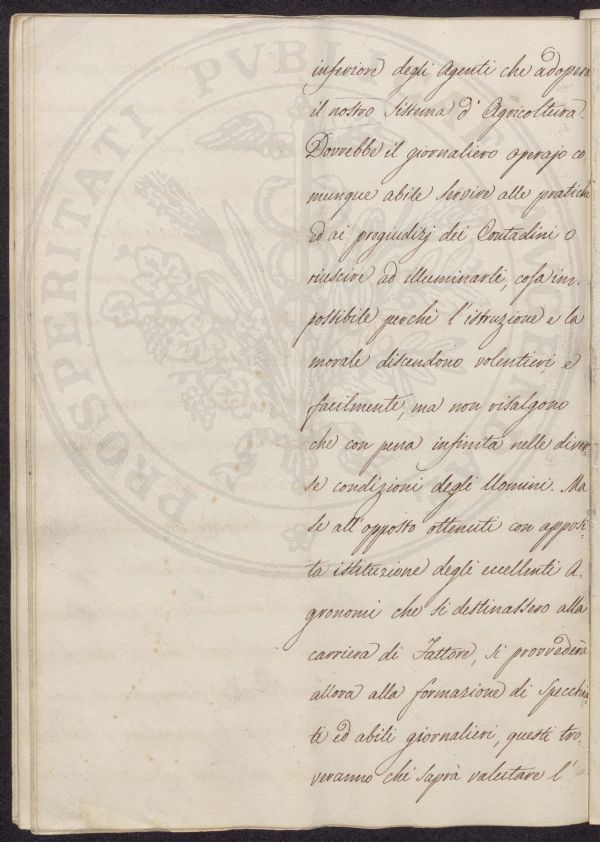 inferiore degli Agenti che adopera
il nostro Sistema d'Agricoltura.
Dovrebbe il giornaliero oprajo co-
munque abile servire alle pratiche
ed ai pregiudizj dei Contadini o
riuscire ad illuminarli, cosa im-
possibile perchè l'istruzione e la
morale discendono volentieri e
facilmente, ma non risalgono
che con pena infinita nelle diver-
se condizioni degli Uomini. Ma
se all'opposto ottenuti con apposi-
ta istituzione degli eccellenti A-
gronomi che si destinassero alla
carriera di Fattore, si provvederà
allora alla formazione di specchia-
ti ed abili giornalieri, questi tro-
veranno chi saprà valutare l'
PROSPERITATI PVBLICAE